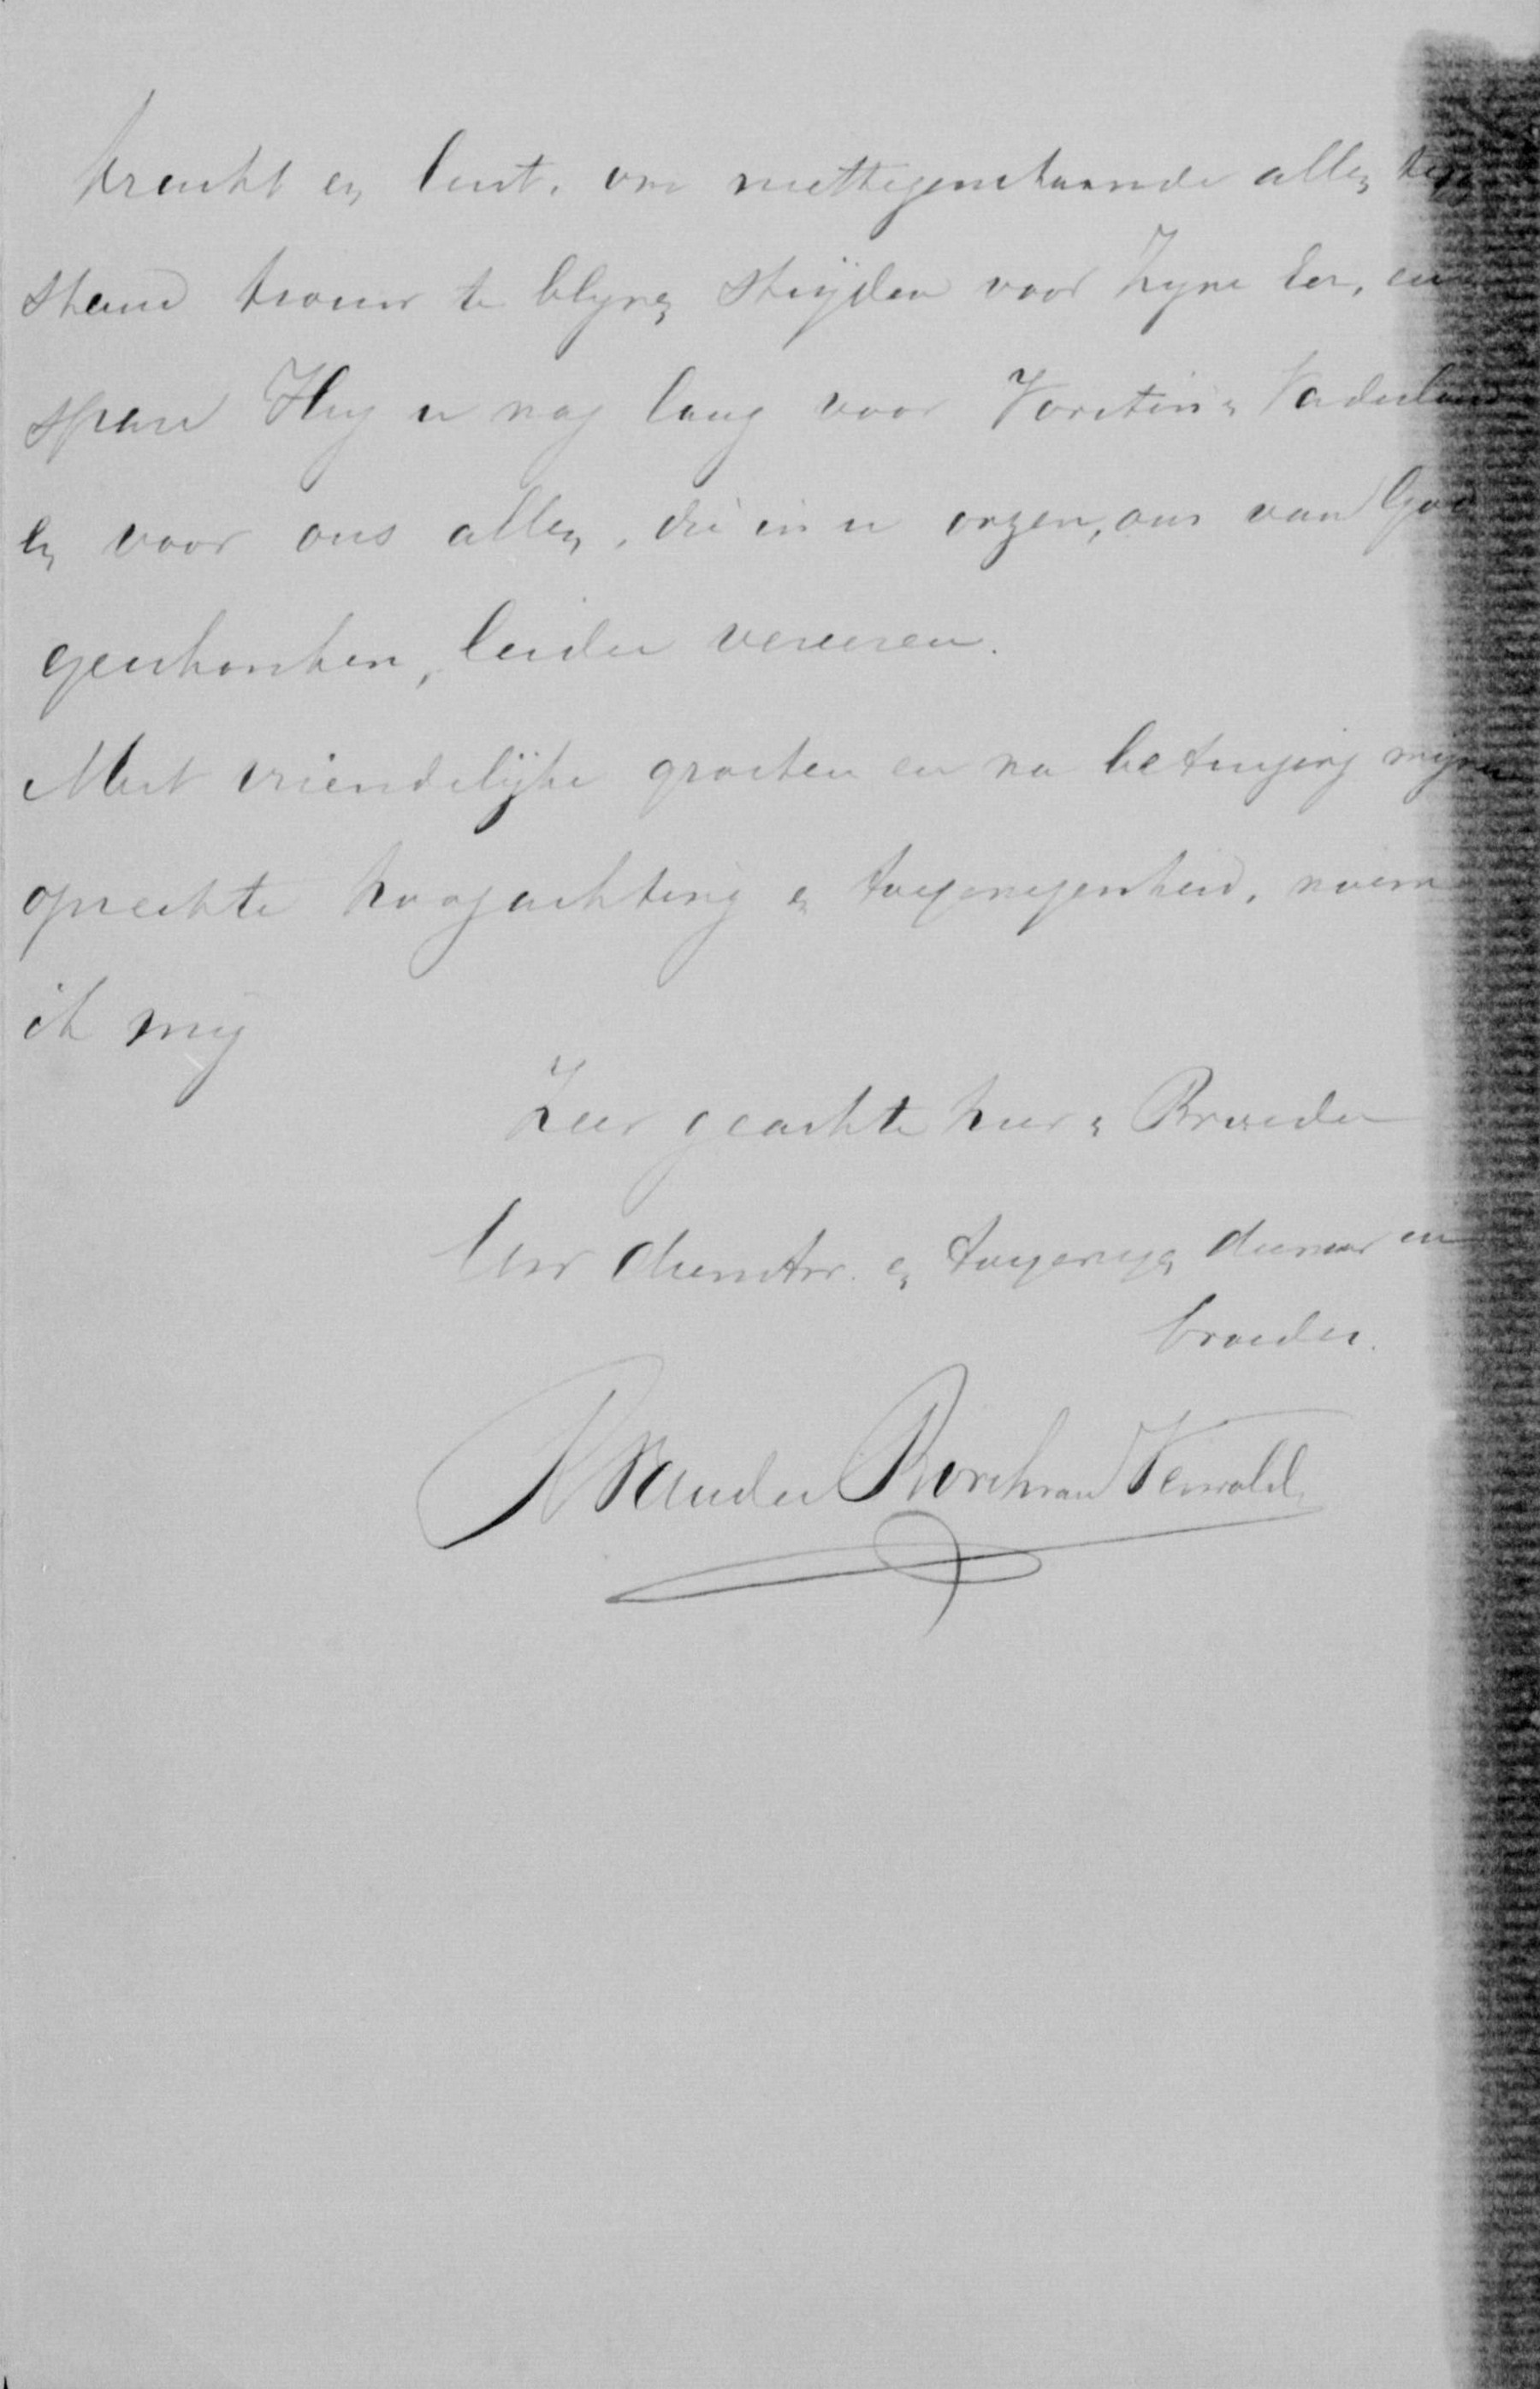 kracht en lust, om niettegenstaande allen tegen
stand trouw te blyven strijden voor Zyne Eer, en
spare Hy u nog lang voor Vorstin en Vaderland
en voor ons allen, die in u onzen, ons van God
geschonken, leider vereeren.
Met vriendelijke groeten en na betuiging myner
oprechte hoogachting en toegenegenheid, noem
ik mij
Zeer geachte heer en Broeder
Uw dienstw. en toegenegen dienaar en
broeder.
van der Borch van Verwolde